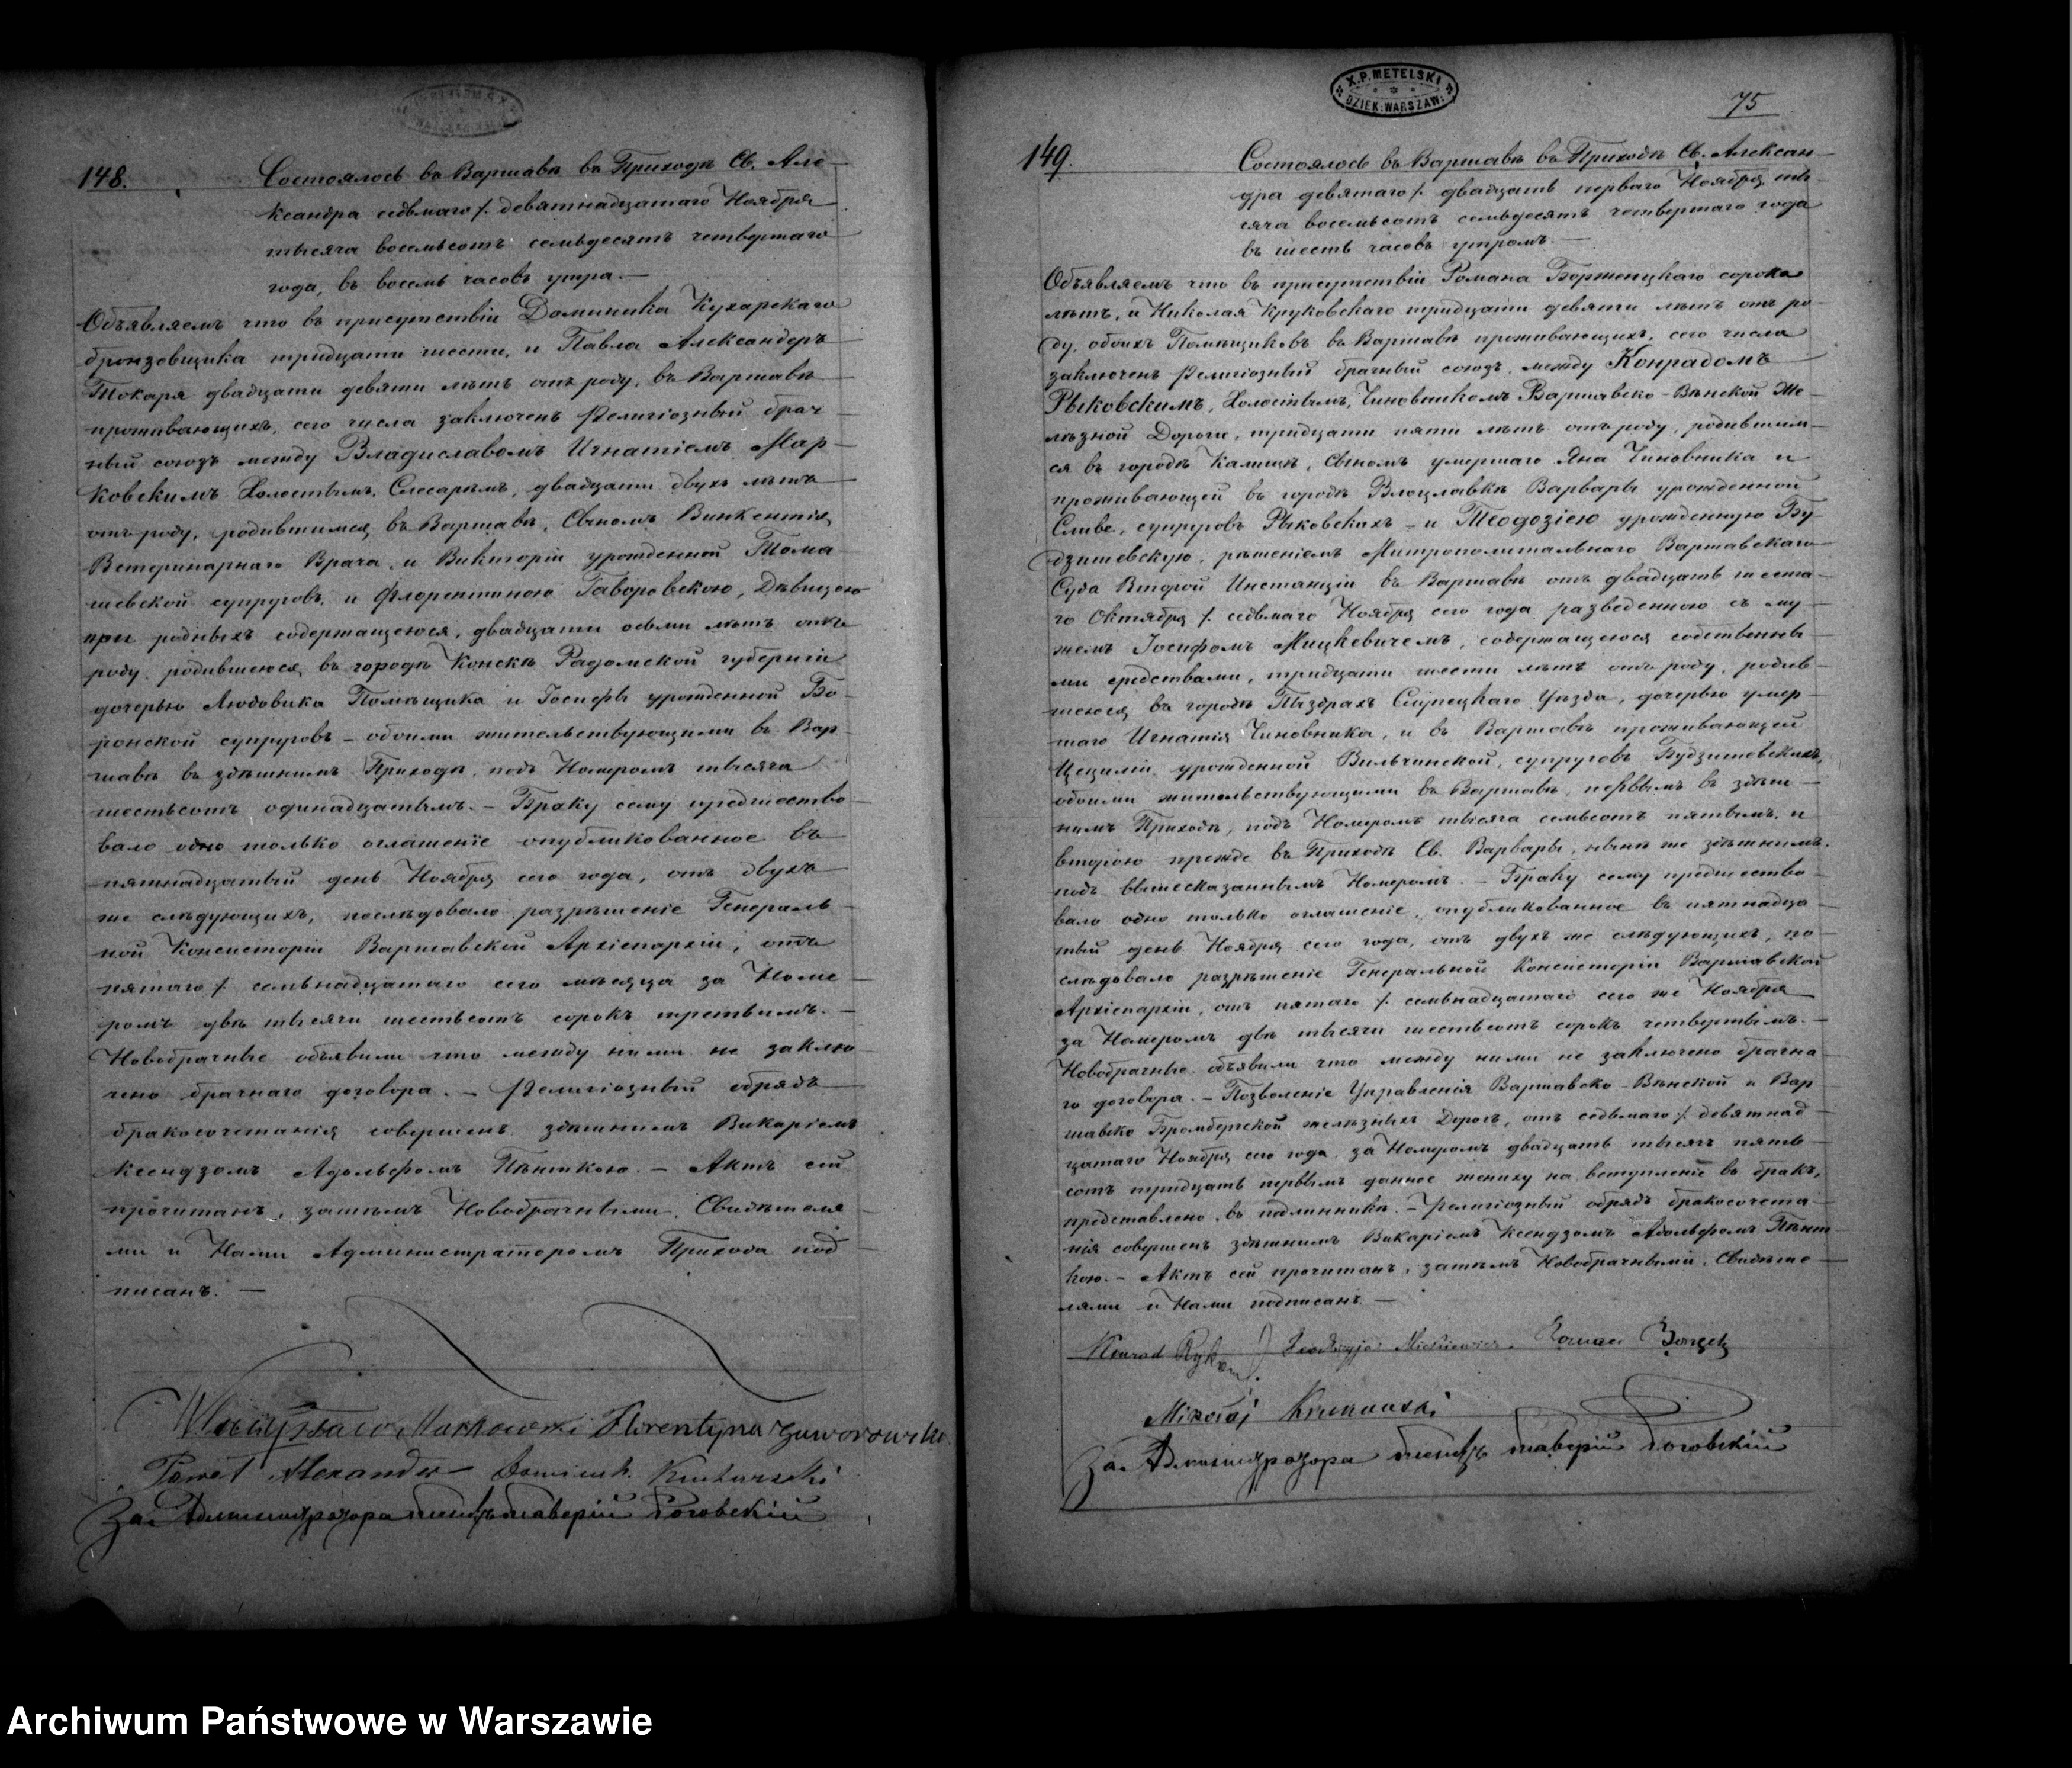 148.
Состоялось въ Варшавѣ въ Приходѣ Св. Але-
ксандра седьмаго /. девятнадцатаго Ноября
тысяча восемьсотъ семьдесятъ четвертаго
года, въ восемь часовъ утра. —
Объявляемъ что въ присутствіи Доминика Кухарскаго
бронзовщика тридцати шести, и Павла Александеръ
Токаря двадцати девяти лѣтъ отъ роду, въ Варшавѣ
проживающихъ, сего числа заключенъ Религіозный брач-
ный союзъ между Владиславомъ Игнатіемъ Мар-
ковскимъ Холостымъ, Слесарѣмъ, двадцати двухъ лѣтъ
отъ роду, родившимся въ Варшавѣ, Сыномъ Винкентія,
Ветеринарнаго Врача, и Викторіи урожденной Тома-
шевской супруговъ, и Флорентиною Гаворовскою, Дѣвицею
при родныхъ содержащеюся, двадцати осьми лѣтъ отъ
роду, родившеюся въ городѣ Конскѣ Радомской губерніи
дочерью Людовика Помѣщика и Іосифы урожденной Бо-
ронской супруговъ – обоими жительствующими въ Вар-
шавѣ въ здѣшнимъ Приходѣ, подъ Номеромъ тысяча
шестьсотъ одинадцатымъ. – Браку сему предшество-
вало одно только оглашеніе опубликованное въ
пятнадцатый день Ноября сего года, отъ двухъ
же слѣдующихъ, послѣдовало разрѣшеніе Генераль-
ной Консисторіи Варшавской Архіепархіи, отъ
пятаго /. семьнадцатаго сего мѣсяца за Номе-
ромъ двѣ тысячи шестьсотъ сорокъ третьимъ. –
Новобрачные объявили что между ними не заклю-
чено брачнаго договора. – Религіозный обрядъ
бракосочетанія совершенъ здѣшнимъ Викаріемъ
Ксендзомъ Адольфомъ Пѣнткою. – Актъ сей
прочитанъ, затѣмъ Новобрачными, Свидѣтеля-
ми и Нами Администраторомъ Прихода под-
писанъ. —
Władysław Markowski Florentyna Gaworowska
Paweł Alexander Dominik Kucharski
За Администратора Ксендзъ Ксаверій Роговскій
X.P. METELSKI
DZIEK: WARSZAW:
75
149.
Состоялось въ Варшавѣ въ Приходѣ Св. Алексан-
дра девятаго /. двадцать перваго Ноября ты-
сяча восемьсотъ семьдесятъ четвертаго года
въ шесть часовъ утромъ. —
Объявляемъ что въ присутствіи Романа Борженцкаго сорока
лѣтъ, и Николая Круковскаго тридцати девяти лѣтъ отъ ро-
ду, обоихъ Помѣщиковъ въ Варшавѣ проживающихъ, сего числа
заключенъ Религіозный брачный союзъ между Конрадомъ
Рыковскимъ, Холостымъ, Чиновникомъ Варшавско-Вѣнской Же-
лѣзной Дороги, тридцати пяти лѣтъ отъ роду, родившим-
ся въ городѣ Калишѣ, Сыномъ умершаго Яна Чиновника и
проживающей въ городѣ Влоцлавкѣ Варвары урожденной
Сливе, супруговъ Рыковскихъ – и Теодозіею урожденную Бу-
дзишевскую, рѣшеніемъ Митрополитальнаго Варшавскаго
Суда Второй Инстанціи въ Варшавѣ отъ двадцать шеста-
го Октября /. седьмаго Ноября сего года разведенною съ му-
жемъ Іосифомъ Мицкевичемъ, содержащеюся собственны-
ми средствами, тридцати шести лѣтъ отъ роду, родив-
шеюся въ городѣ Пыздрахъ Слупецкаго Уѣзда, дочерью умер-
шаго Игнатія Чиновника, и въ Варшавѣ проживающей
Цециліи урожденной Вильчинской, супруговъ Будзишевскихъ,
обоими жительствующими въ Варшавѣ, первымъ въ здѣш-
нимъ Приходѣ, подъ Номеромъ тысяча семьсотъ пятымъ, и
второю прежде въ Приходѣ Св. Варвары, нынѣ же здѣшнимъ,
подъ вышесказаннымъ Номеромъ. – Браку сему предшество-
вало одно только оглашеніе, опубликованное въ пятнадца-
тый день Ноября сего года, отъ двухъ же слѣдующихъ, по-
слѣдовало разрѣшеніе Генеральной Консисторіи Варшавской
Архіепархіи, отъ пятаго /. семьнадцатаго сего же Ноября
за Номеромъ двѣ тысячи шестьсотъ сорокъ четвертымъ. –
Новобрачные объявили что между ними не заключено брачна-
го договора. – Позволеніе Управленія Варшавско-Вѣнской и Вар-
шавско Бромбергской желѣзныхъ Дорогъ, отъ седьмаго /. девятнад-
цатаго Ноября сего года, за Номеромъ двадцать тысячъ пять-
сотъ тридцать первымъ данное жениху на вступленіе въ бракъ,
представлено въ подлинникѣ. – Религіозный обрядъ бракосочета-
нія совершенъ здѣшнимъ Викаріемъ Ксендзомъ Адольфомъ Пѣнт-
кою. – Актъ сей прочитанъ, затѣмъ Новобрачными, Свидѣте-
лями и Нами подписанъ. —
Konrad Teodozyja Mickiewicz Roman
Mikołaj Krukowski
За Администратора Ксендзъ Ксаверій Роговскій
Archiwum Państwowe w Warszawie